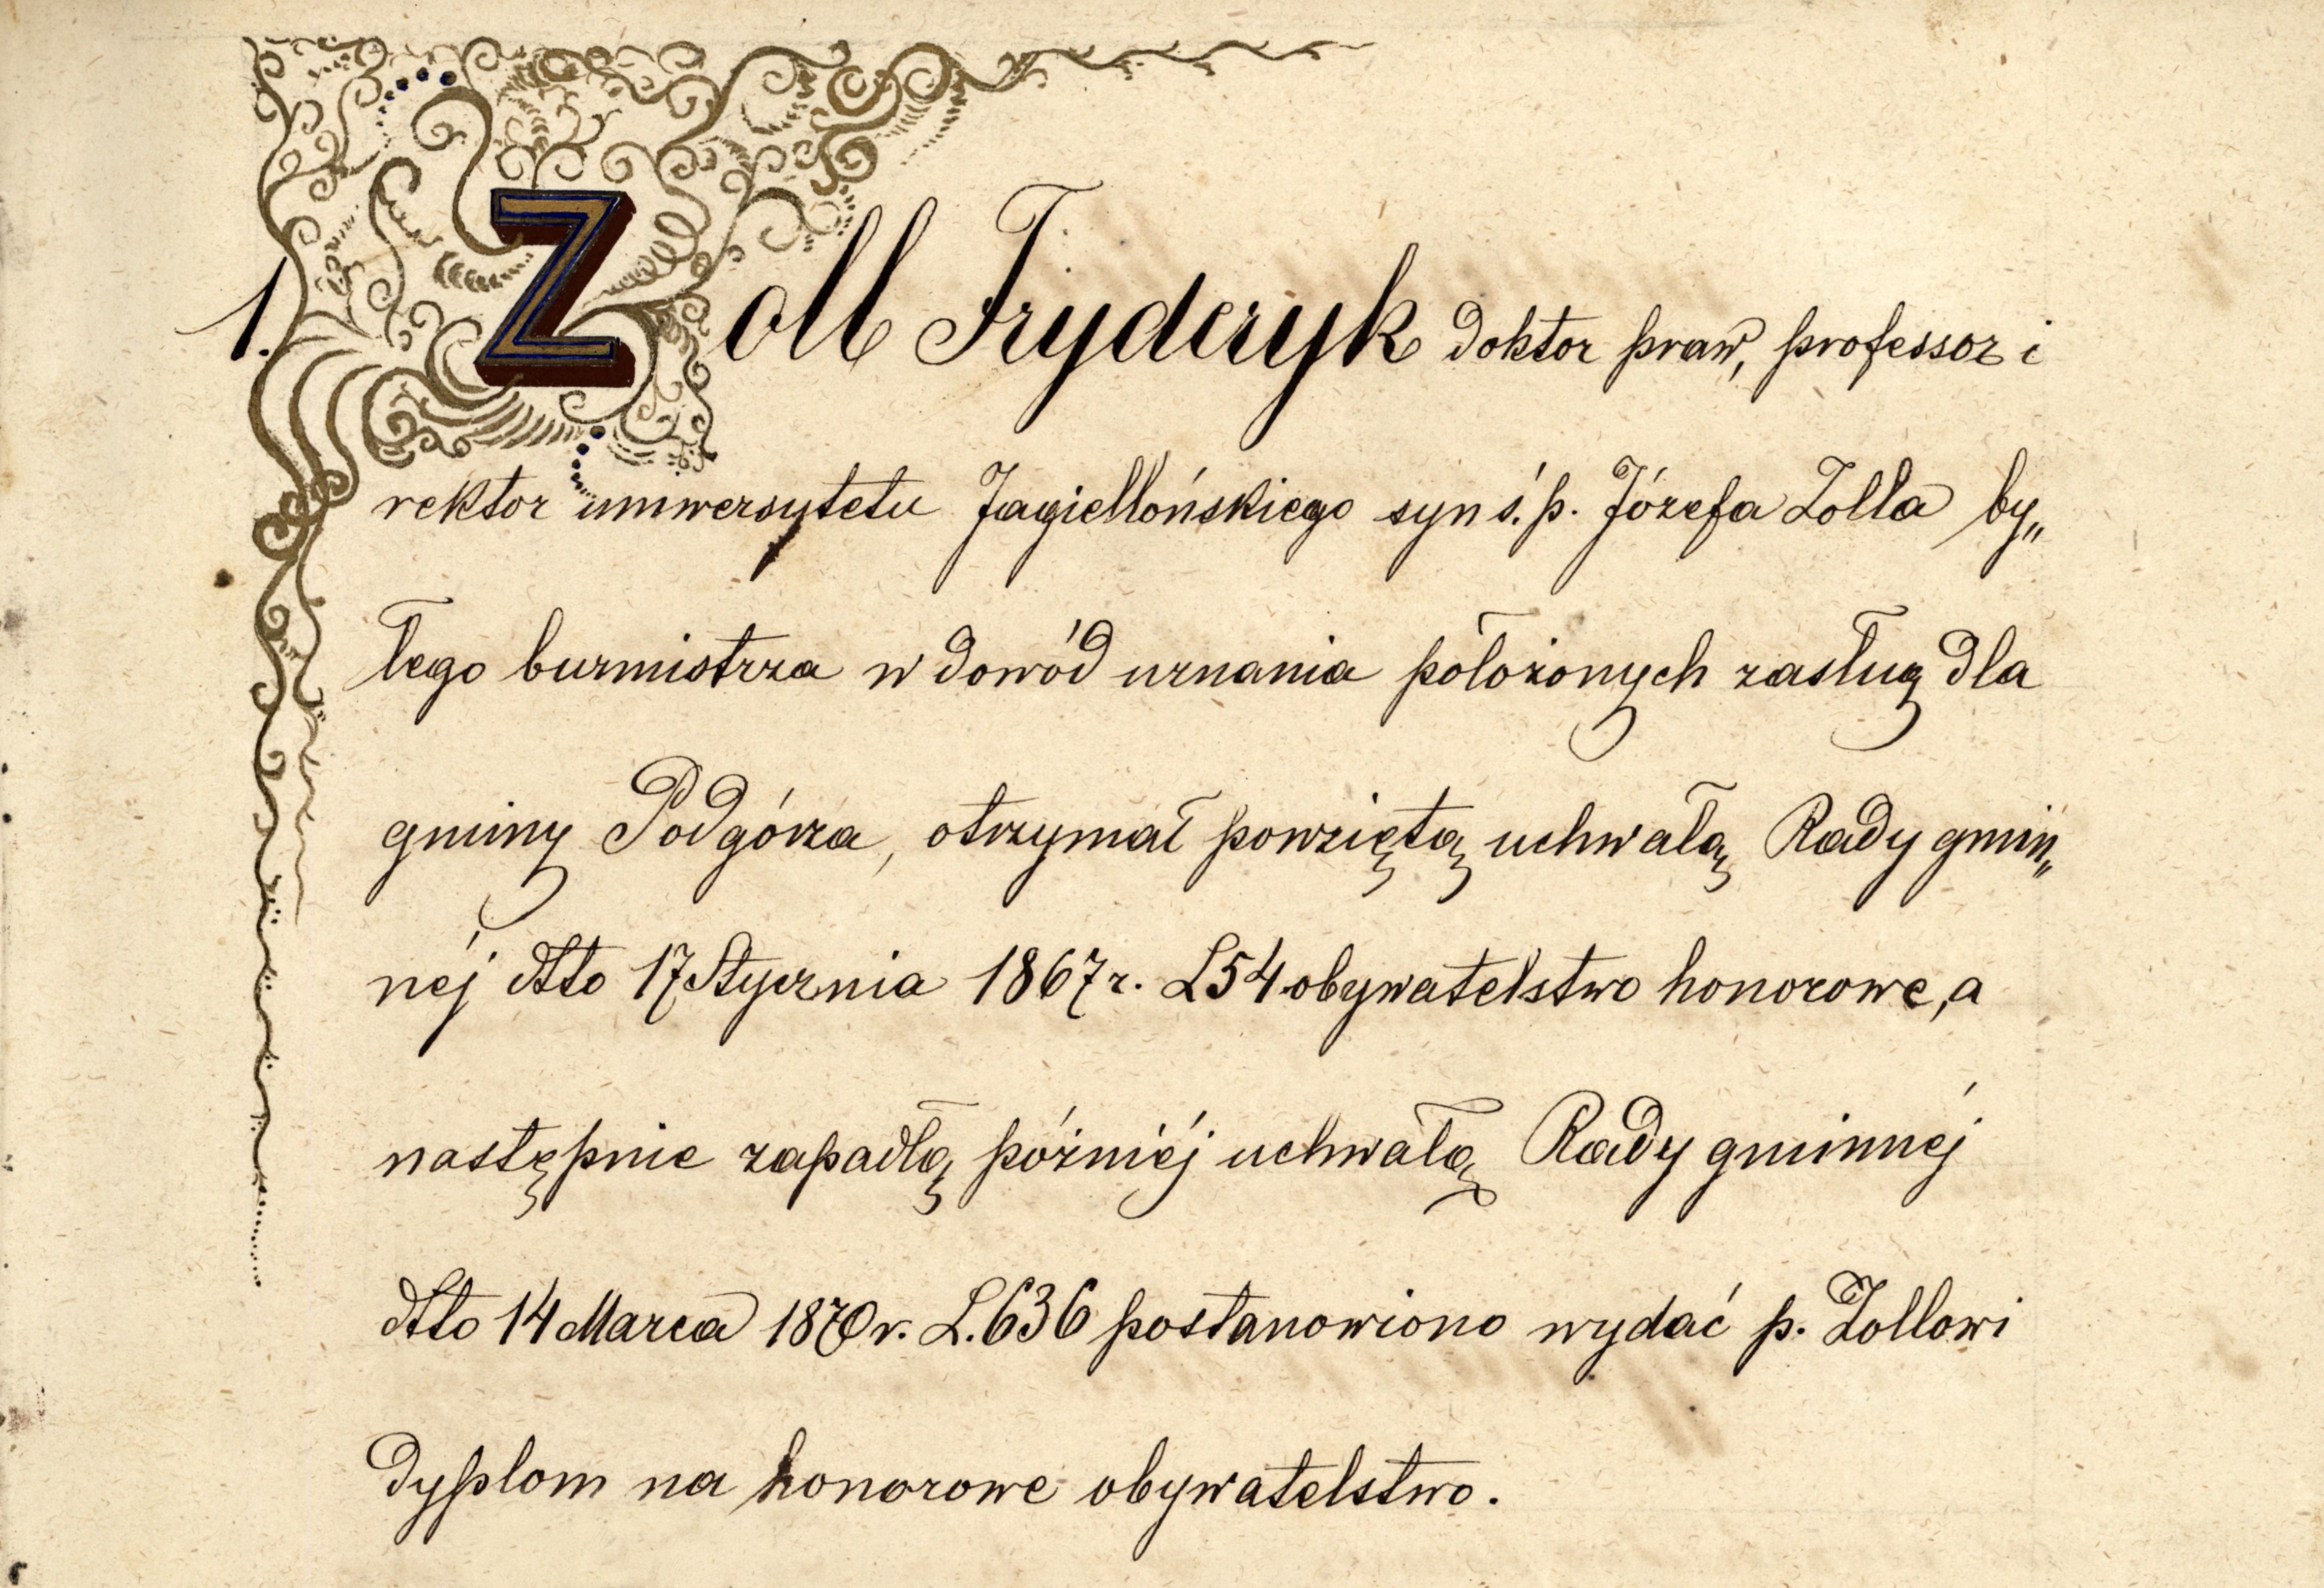 1. Zoll Fryderyk doktor praw, professor i
rektor uniwersytetu Jagiellońskiego syn ś.p. Józefa Zolla by„
łego burmistrza w dowód uznania położonych zasług dla
gminy Podgórza, otrzymał powziętą uchwałą Rady gmin„
néj dtto 17 Stycznia 1867 r. L 54 obywatelstwo honorowe, a
następnie zapadłą późniéj uchwałą Rady gminnéj
dtto 14 Marca 1870 r. L. 636 postanowiono wydać p. Zollowi
dyplom na honorowe obywatelstwo.